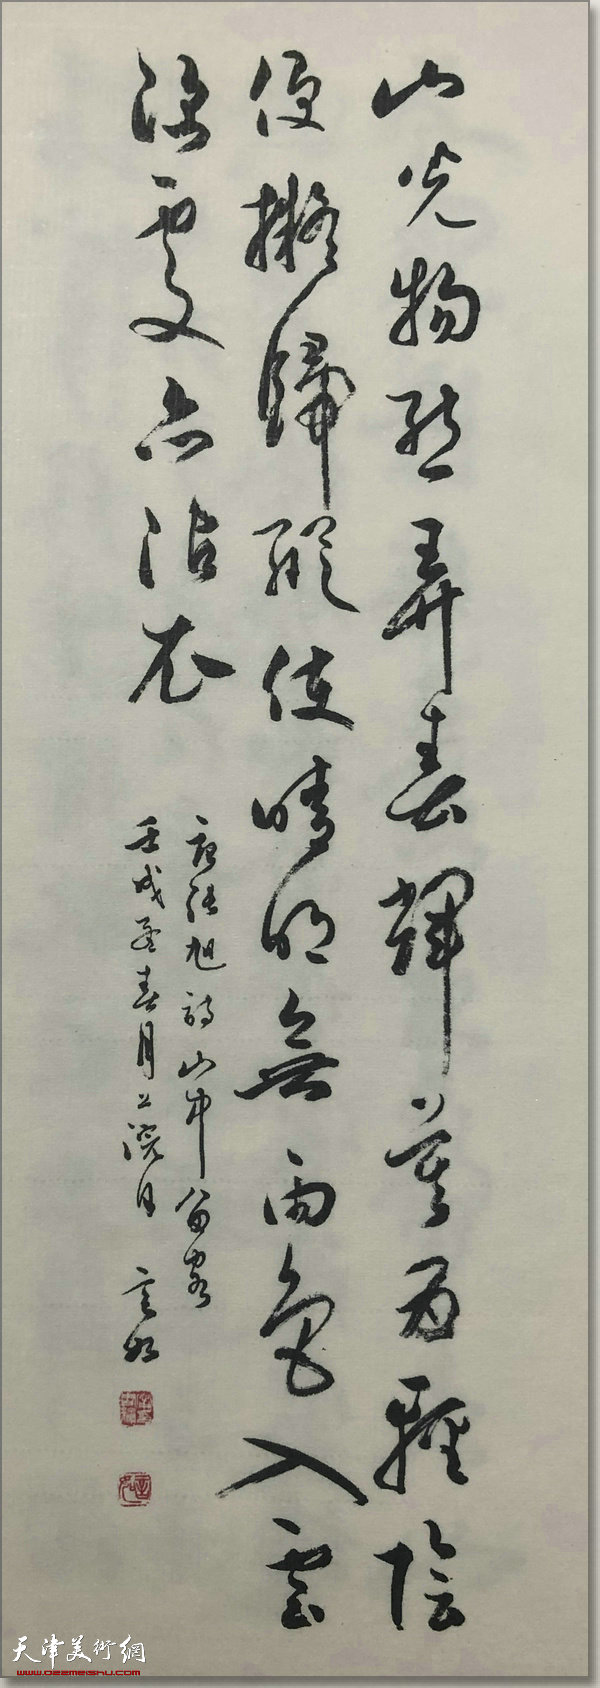 山光物態弄春輝莫爲輕陰
便擬歸縱使晴明無雨色入雲
深處亦沾衣
唐張旭詩山中留客
壬戌孟春月上浣日 言如
天津美術網
www.022meishu.com